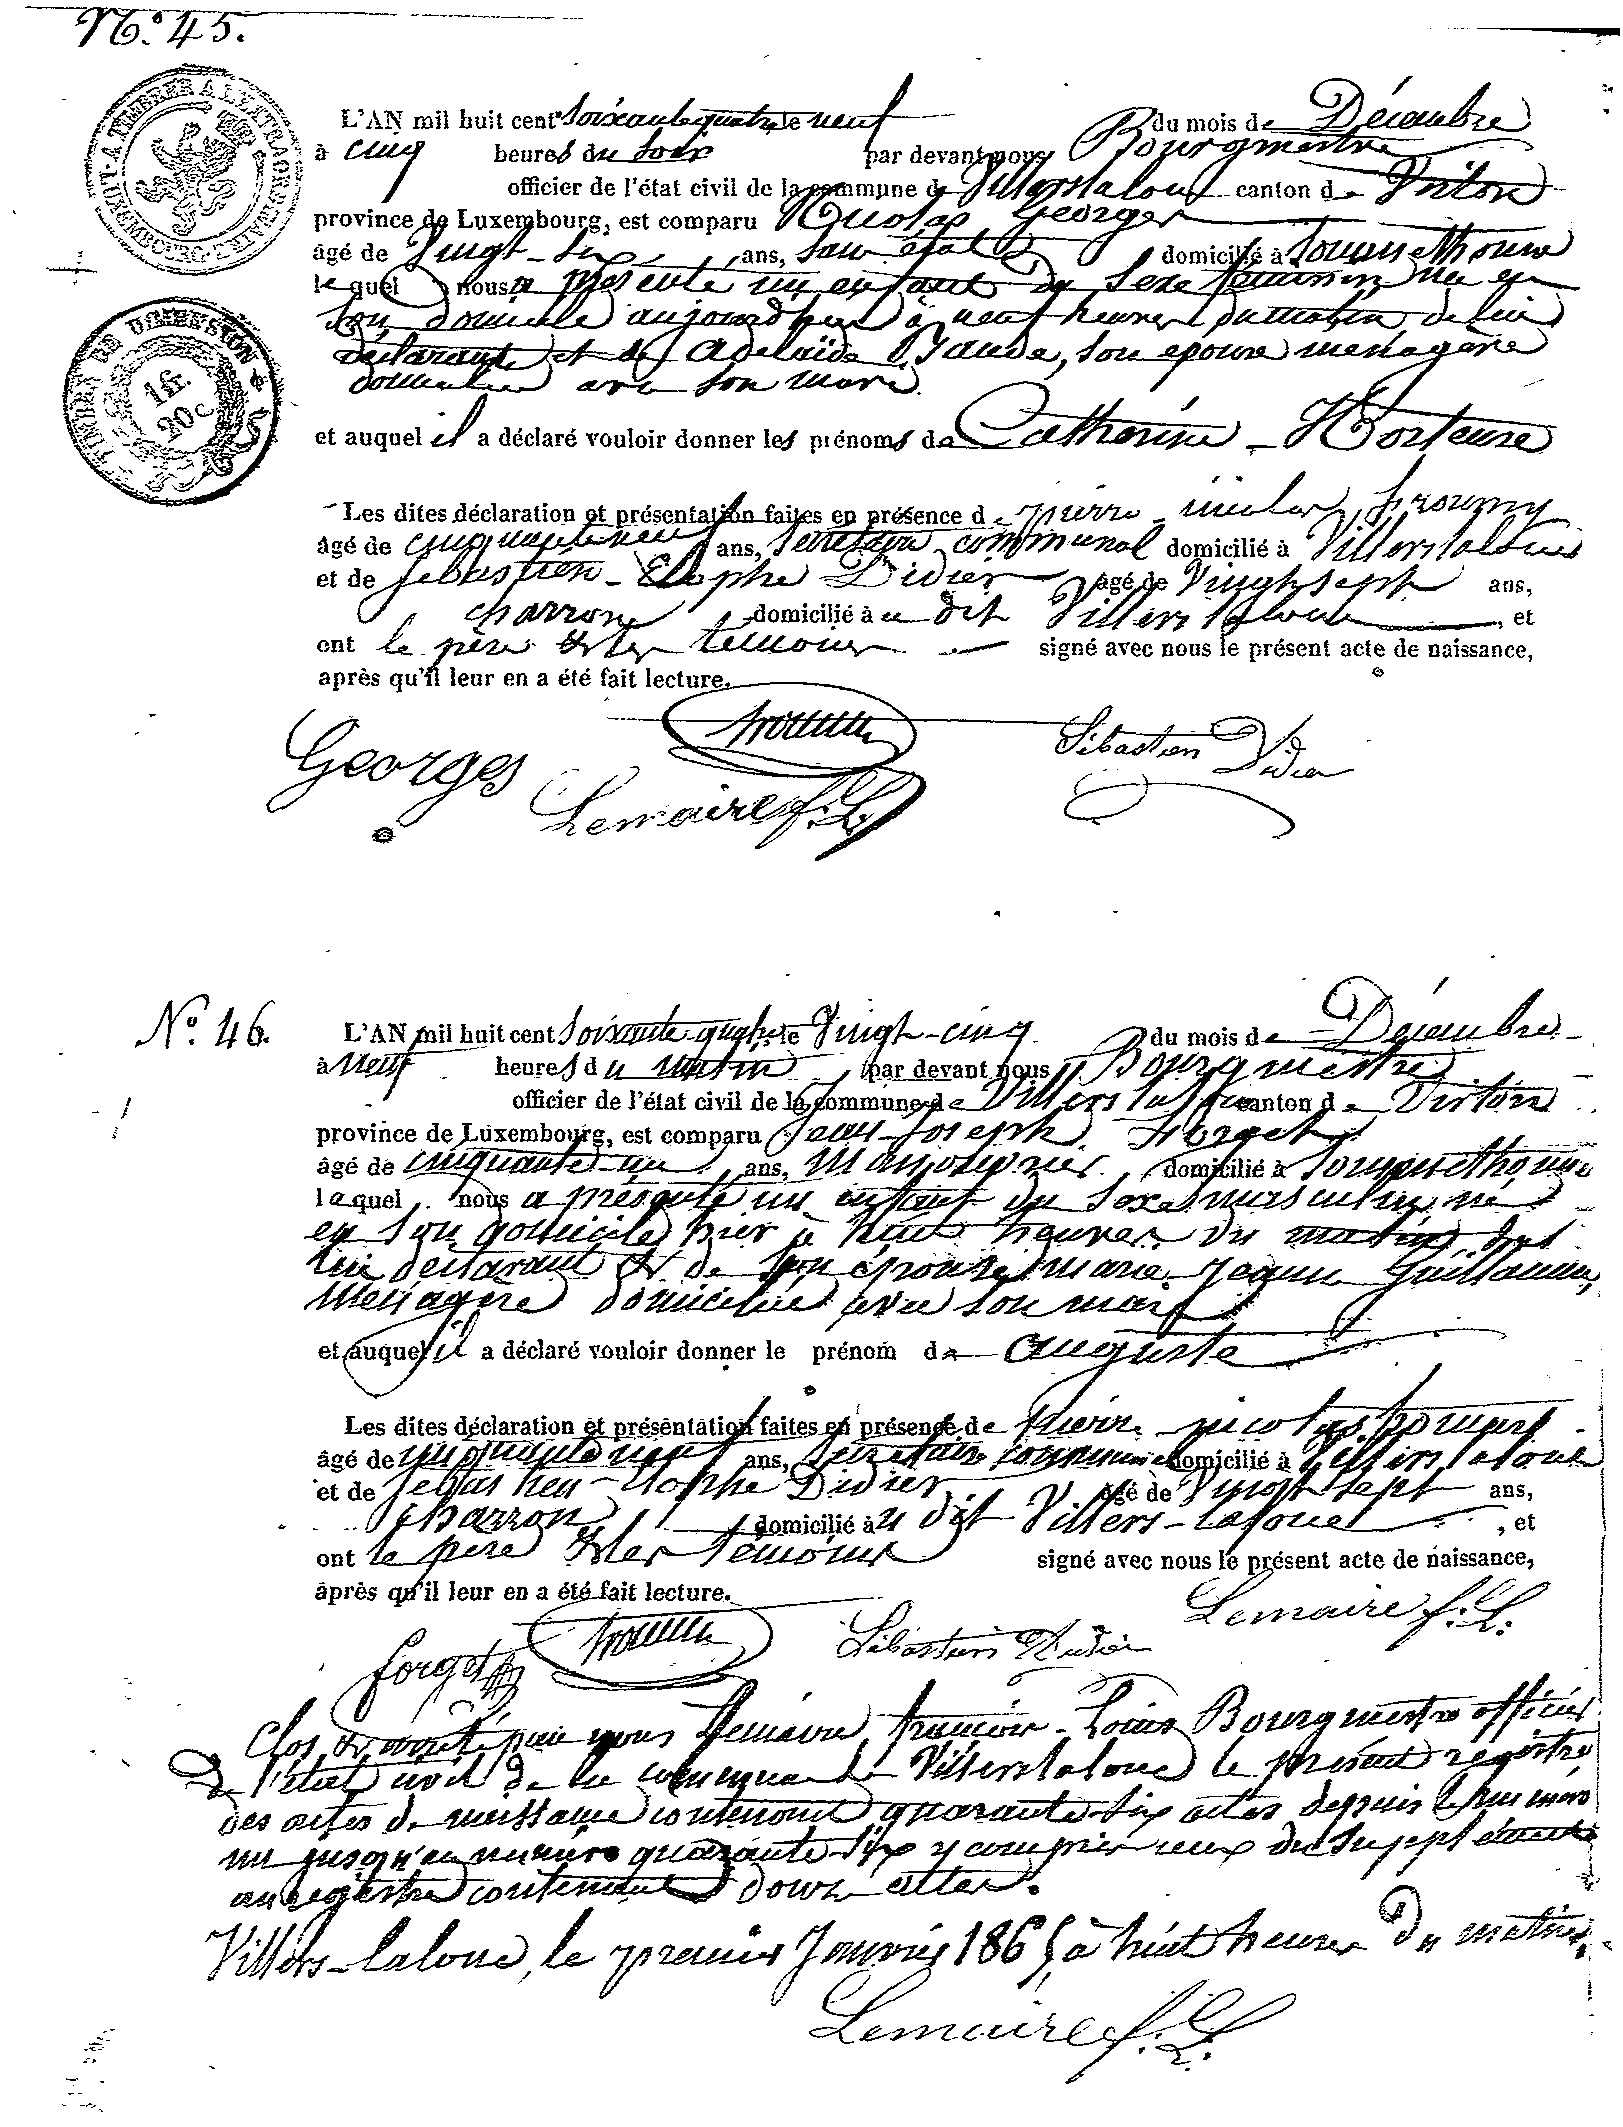 N.º 45.
A TIMBRER A L'EXTRAORDINAIRE
TIMBRE DE DIMENSION
1 fr.
20 c
L'AN mil huit cent soixante quatre le neuf du mois de Décembre
à cinq heures du soir par devant nous Bourgmestre
officier de l'état civil de la commune de Villers laloue canton de Virton
province de Luxembourg, est comparu Nicolas Georges
âgé de Vingt-six ans, sans état domicilié à Sommethonne
lequel nous a présenté un enfant du sexe féminin née en
son domicile aujourd'hui à neuf heures du matin de lui
déclarant et de Adelaïde Baude, son épouse ménagère
domiciliée avec son mari
et auquel il a déclaré vouloir donner les prénoms de Catherine - Hortense
Les dites déclaration et présentation faites en présence de pierre nicolas
âgé de cinquante neuf ans, secrétaire communal domicilié à Villers laloue
et de Sebastien - Elophe Didier âgé de Vingt sept ans,
charron domicilié à u dit Villers laloue , et
ont le père & les témoins signé avec nous le présent acte de naissance,
après qu'il leur en a été fait lecture.
Georges
Sébastien Didier
Lemaire f: L:
N.º 46.
L'AN mil huit cent soixante quatre le Vingt-cinq du mois de Décembre
à neuf heures du matin par devant nous Bourgmestre
officier de l'état civil de la commune de Villers laloue canton de Virton
province de Luxembourg, est comparu Jean-Joseph Forget
âgé de cinquante un ans, manouvrier domicilié à Sommethonne
lequel nous a présenté un enfant du sexe masculin né
en son domicile hier à huit heures du matin de
lui déclarant & de son épouse marie Jeanne Guillaume,
ménagère domiciliée avec son mari
et auquel il a déclaré vouloir donner le prénom de auguste
Les dites déclaration et présentation faites en présence de pierre nicolas
âgé de cinquante neuf ans, secrétaire communal domicilié à Villers laloue
et de Sebastien - Elophe Didier âgé de Vingt sept ans,
charron domicilié à u dit Villers-laloue , et
ont le père & les témoins signé avec nous le présent acte de naissance,
après qu'il leur en a été fait lecture.
Lemaire f: L:
forget
Sébastien Didier
Clos & arrêté par nous Lemaire françois-Louis Bourgmestre officier
de l'état civil de la commune de Villers laloue le présent registre
des actes de naissance contenant quarante-six actes depuis le numero
un jusqu'au numéro quarante-six y compris ceux du supplément
au registre contenant douze actes.
Villers-laloue, le premier Janvier 1865 à huit heures du matin.
Lemaire f: L: